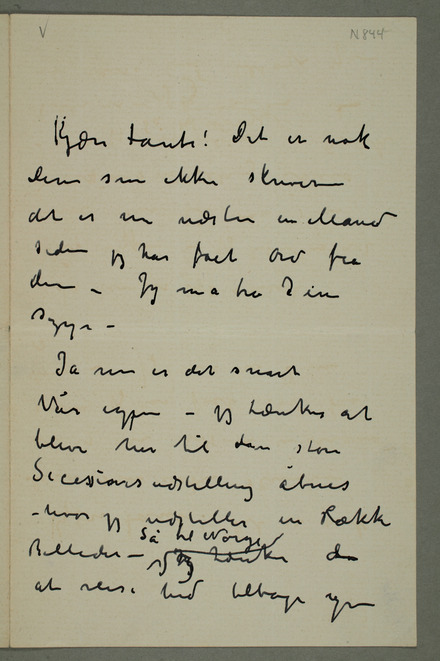 V
N 844
Kjære tante! Det er nok
dere som ikke skriver
det er nu næsten en Maaned
siden jeg har faet ord fra
dere – Jeg ma fra
syge –
Ja nu er det snart
Vår igjen – jeg tænker at
blive her til den store
Secessionsudstilling åbnes
– hvor jeg udstiller en Række
Billeder –
Så til Norge
jeg tænker da
at reise hid tilbage igjen